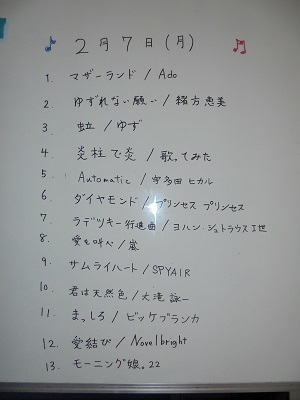 ♪ 2月7日(月) ♫
1. マザーランド / Ado
2. ゆずれない願い / 緒方恵美
3. 虹 / ゆず
4. 炎柱で炎 / 歌ってみた
5. Automatic / 宇多田ヒカル
6. ダイヤモンド / プリンセス プリンセス
7. ラデツキー行進曲 / ヨハン・シュトラウスI世
8. 愛を叫べ / 嵐
9. サムライハート / SPYAIR
10. 君は天然色 / 大滝詠一
11. まっしろ / ビッケブランカ
12. 愛結び / Novelbright
13. モーニング娘。22